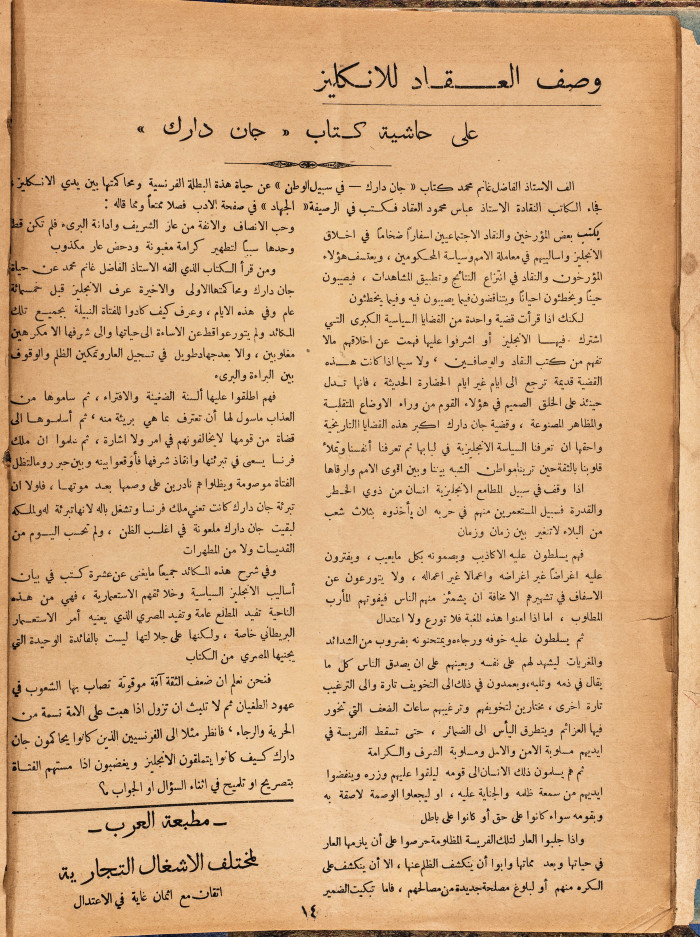 وصف العقاد للانكليز
على حاشية كتاب « جان دارك »
الف الاستاذ الفاضل غانم محمد كتاب « جان دارك — في سبيل الوطن » عن حياة هذه البطلة الفرنسية ومحاكمتها بين يدي الانكليز ،
فجاء الكاتب النقادة الاستاذ عباس محمود العقاد فكتب في الرصيفة « الجهاد » في صفحة الادب فصلا ممتعاً ومما قاله :
يكتب بعض المؤرخين والنقاد الاجتماعيين اسفاراً ضخاماً في اخلاق
الانجليز واساليبهم في معاملة الامم وسياسة المحكومين ، ويعتسف هؤلاء
المؤرخون والنقاد في انتزاع النتائج وتطبيق المشاهدات ، فيصيبون
حيناً ويخطئون احياناً ويتناقضون فيما يصيبون فيه وفيما يخطئون
لكنك اذا قرأت قضية واحدة من القضايا السياسية الكبرى التي
اشترك فيها الانجليز أو اشرفوا عليها فهمت عن اخلاقهم مالا
تفهم من كتب النقاد والوصافين ، ولا سيما اذا كانت هذه
القضية قديمة ترجع الى ايام غير ايام الحضارة الحديثة ، فانها تدل
حينئذ على الخلق الصميم في هؤلاء القوم من وراء الاوضاع المتقلبة
والمظاهر المصنوعة ، وقضية جان دارك اكبر هذه القضايا التاريخية
واحقها ان تعرفنا السياسة الانجليزية في لبابها ثم تعرفنا أنفسنا وتملأ
قلوبنا بالثقة حين ترينا مواطن الشبه بيننا وبين اقوى الامم وارقاها
اذا وقف في سبيل المطامع الانجليزية انسان من ذوي الخطر
والقدرة فسبيل المستعمرين منهم في حربه ان يأخذوه بثلاث شعب
من البلاء لاتتغير بين زمان وزمان
فهم يسلطون عليه الاكاذيب ويصمونه بكل مايعيب ، ويفترون
عليه اغراضاً غير اغراضه واعمالا غير اعماله ، ولا يتورعون عن
الاسفاف في تشهيرهم الا مخافة ان يشمئز منهم الناس فيفوتهم المأرب
المطلوب ، اما اذا امنوا هذه المغبة فلا تورع ولا اعتدال
ثم يسلطون عليه خوفه ورجاءه ويمتحنونه بضروب من الشدائد
والمغريات ليشهد لهم على نفسه ويعينهم على ان يصدق الناس كل ما
يقال في ذمه وثلبه ، ويعمدون في ذلك الى التخويف تارة والى الترغيب
تارة اخرى ، مختارين لتخويفهم وترغيبهم ساعات الضعف التي تخور
فيها العزائم ويتطرق اليأس الى الضمائر ، حتى تسقط الفريسة في
ايديهم مسلوبة الامن والامل ومسلوبة الشرف والكرامة
ثم هم يسلمون ذلك الانسان الى قومه ليلقوا عليهم وزره وينفضوا
ايديهم من سمعة ظلمه والجناية عليه ، او ليجعلوا الوصمة لاصقة به
وبقومه سواء كانوا على حق أو كانوا على باطل
واذا جلبوا العار لتلك الفريسة المظلومة حرصوا على أن يلزمها العار
في حياتها وبعد مماتها وابوا أن ينكشف الظلم عنها ، الا أن ينكشف على
الكره منهم أو لبلوغ مصلحة جديدة من مصالحهم ، فاما تبكيت الضمير
وحب الانصاف والانفة من عار الشريف وادانة البرىء فلم تكن قط
وحدها سبباً لتطهير كرامة مغبونة ودحض عار مكذوب
ومن قرأ الكتاب الذي الفه الاستاذ الفاضل غانم محمد عن حياة
جان دارك ومحاكمتها الاولى والاخيرة عرف الانجليز قبل خمسمائة
عام وفي هذه الايام ، وعرف كيف كادوا للفتاة النبيلة بجميع تلك
المكائد ولم يتورعوا قط عن الاساءة الى حياتها والى شرفها الا مكرهين
مغلوبين ، والا بعد جهاد طويل في تسجيل العار وتمكين الظلم والوقوف
بين البراءة والبرىء
فهم اطلقوا عليها ألسنة الضغينة والافتراء ، ثم ساموها من
العذاب ماسول لها أن تعترف بما هي بريئة منه ، ثم أسلموها الى
قضاة من قومها لايخالفونهم في امر ولا اشارة ، ثم علموا ان ملك
فرنسا يسعى في تبرئتها وانقاذ شرفها فأوقعوا بينه وبين حبر رومالتظل
الفتاة موصومة ويظلوا هم نادرين على وصمها بعد موتها ، فلولا ان
تبرئة جان دارك كانت تعني ملك فرنسا وتشغل باله لانها تبرئة له ولملكه
لبقيت جان دارك ملعونة في اغلب الظن ، ولم تحسب اليوم من
القديسات ولا من المطهرات
وفي شرح هذه المكائد جميعاً مايغنى عن عشرة كتب في بيان
أساليب الانجليز السياسية وخلائقهم الاستعمارية ، فهي من هذه
الناحية تفيد المطلع عامة وتفيد المصري الذي يعنيه أمر الاستعمار
البريطاني خاصة ، ولكنها على جلالتها ليست بالفائدة الوحيدة التي
يجنيها المصري من الكتاب
فنحن نعلم ان ضعف الثقة آفة موقوتة تصاب بها الشعوب في
عهود الطغيان ثم لا تلبث ان تزول اذا هبت على الامة نسمة من
الحرية والرجاء ، فانظر مثلا الى الفرنسيين الذين كانوا يحاكمون جان
دارك كيف كانوا يتملقون الانجليز ويغضبون اذا مستهم الفتاة
بتصريح او تلميح في اثناء السؤال او الجواب
— مطبعة العرب —
لمختلف الاشغال التجارية
اتقان مع اثمان غاية في الاعتدال
١٤